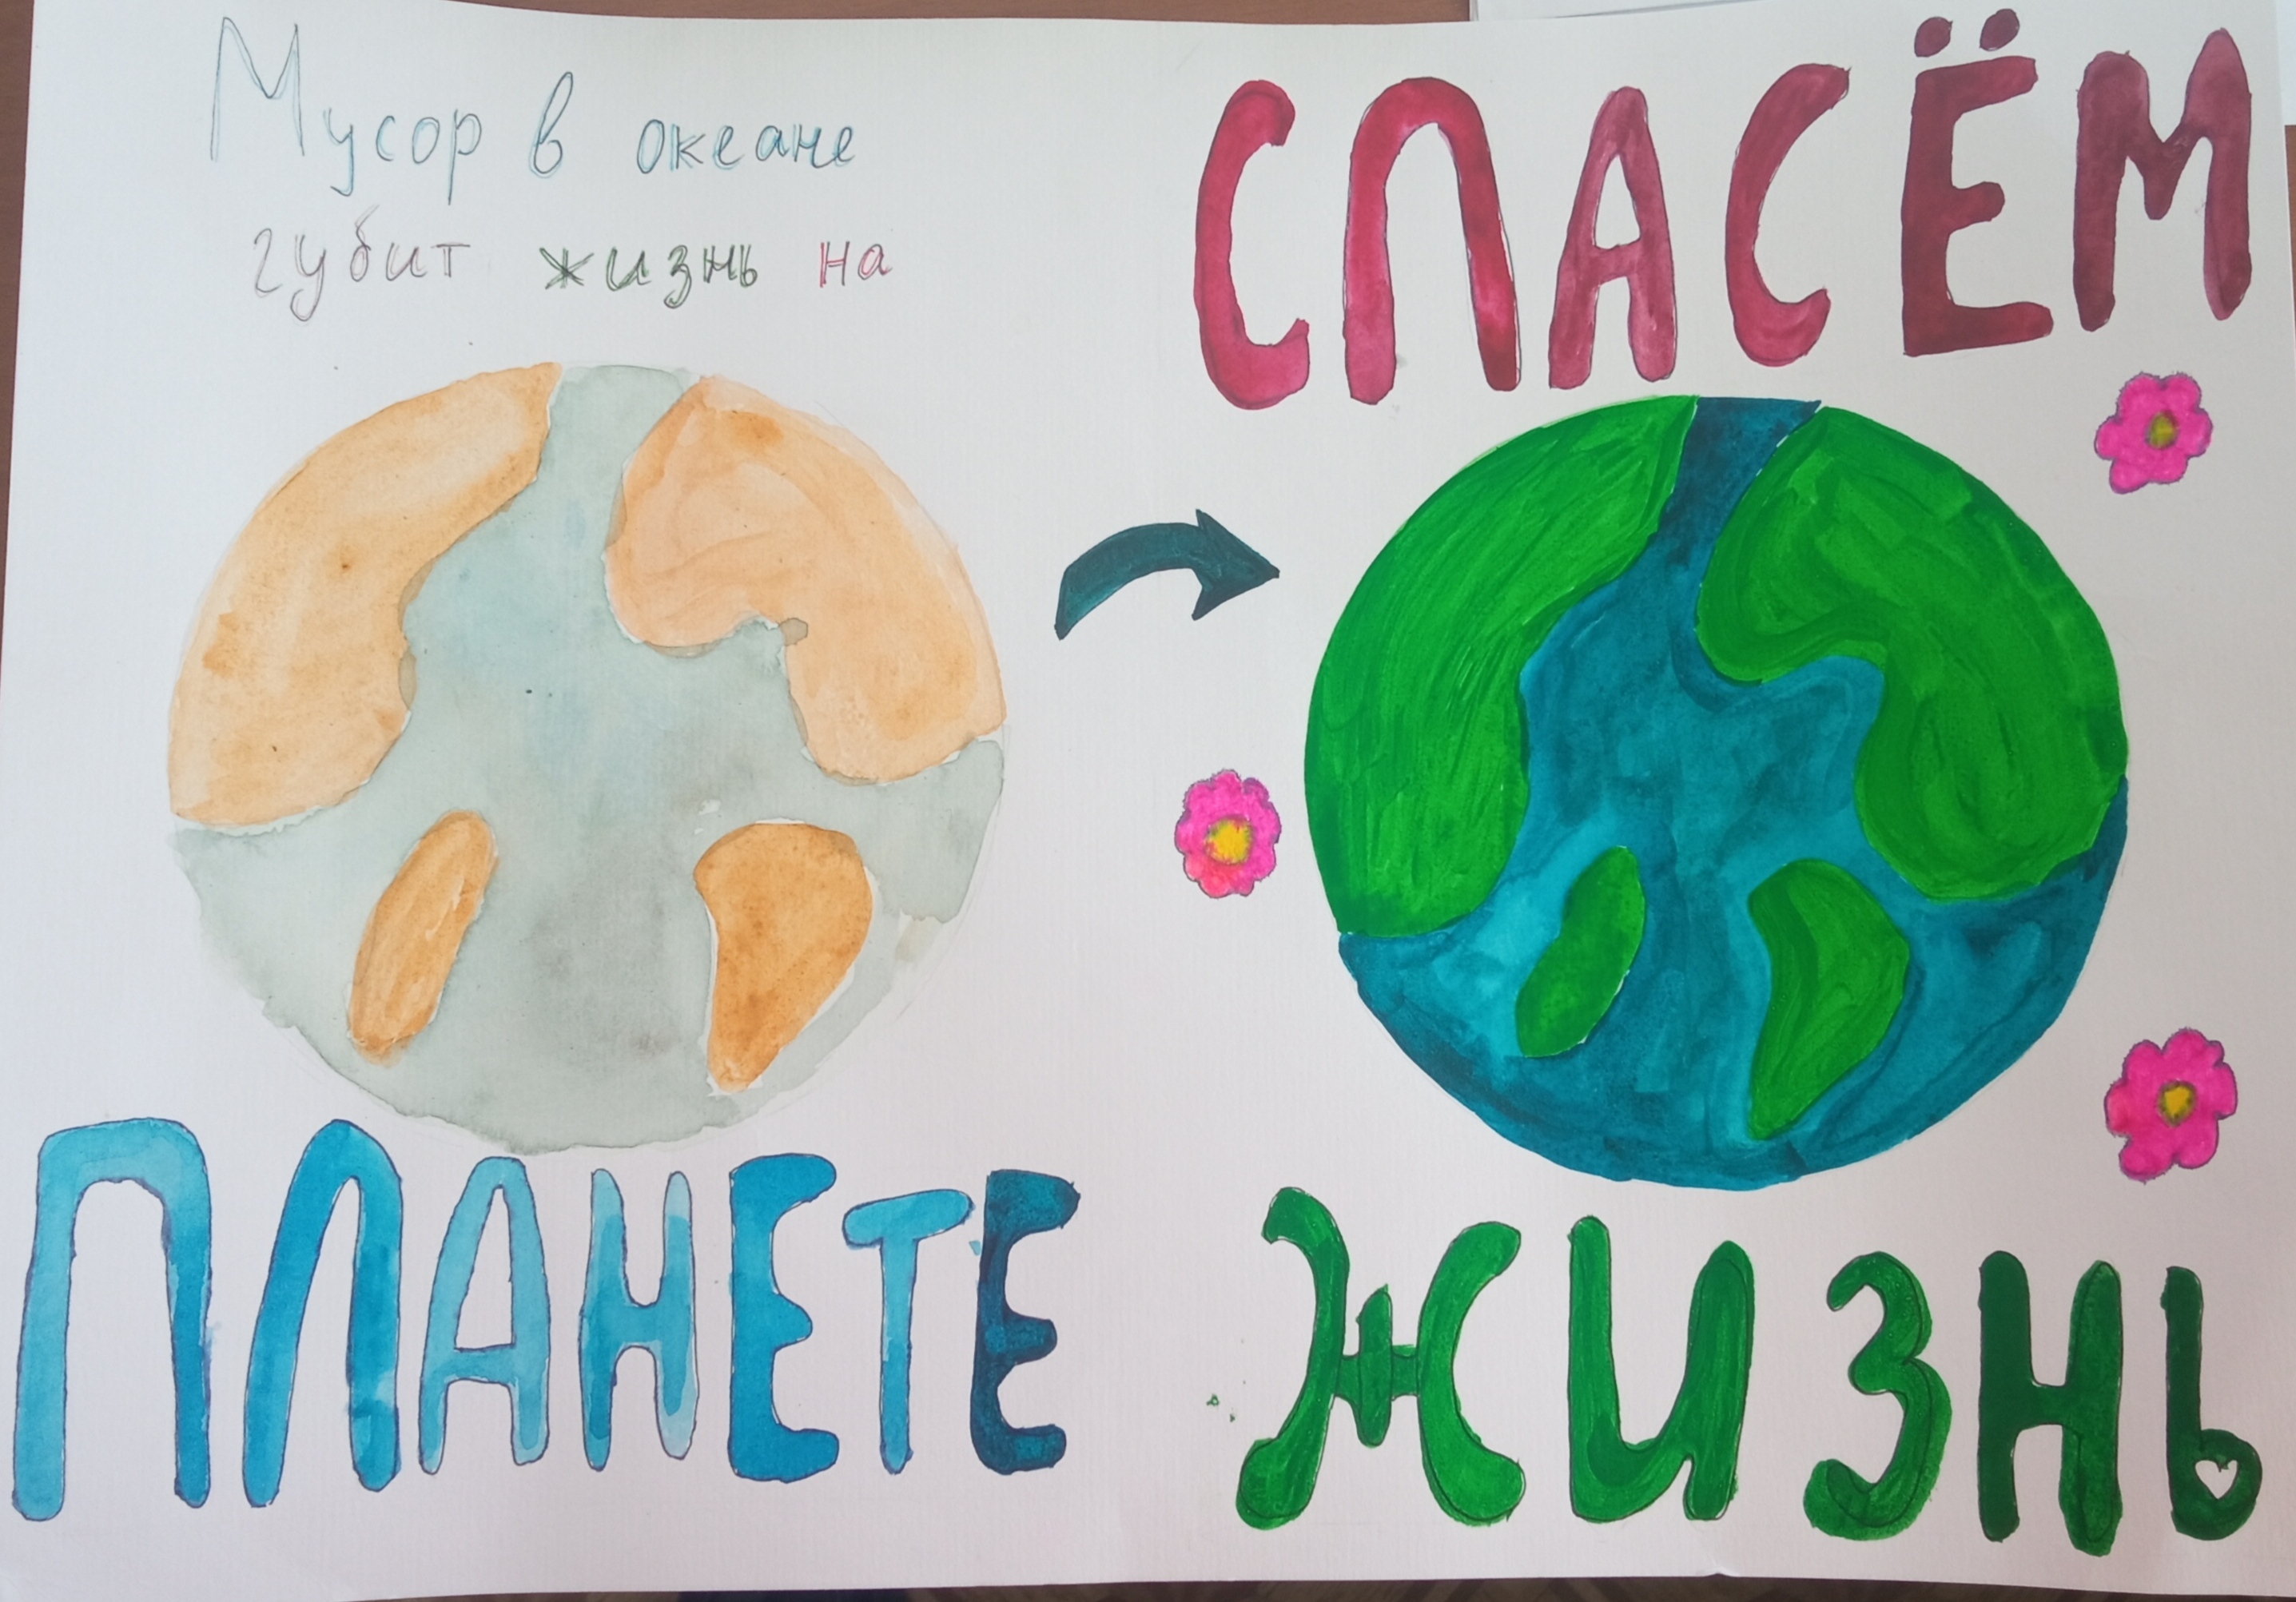 Мусор в океане
губит жизнь на
ПЛАНЕТЕ
СПАСЁМ
ЖИЗНЬ